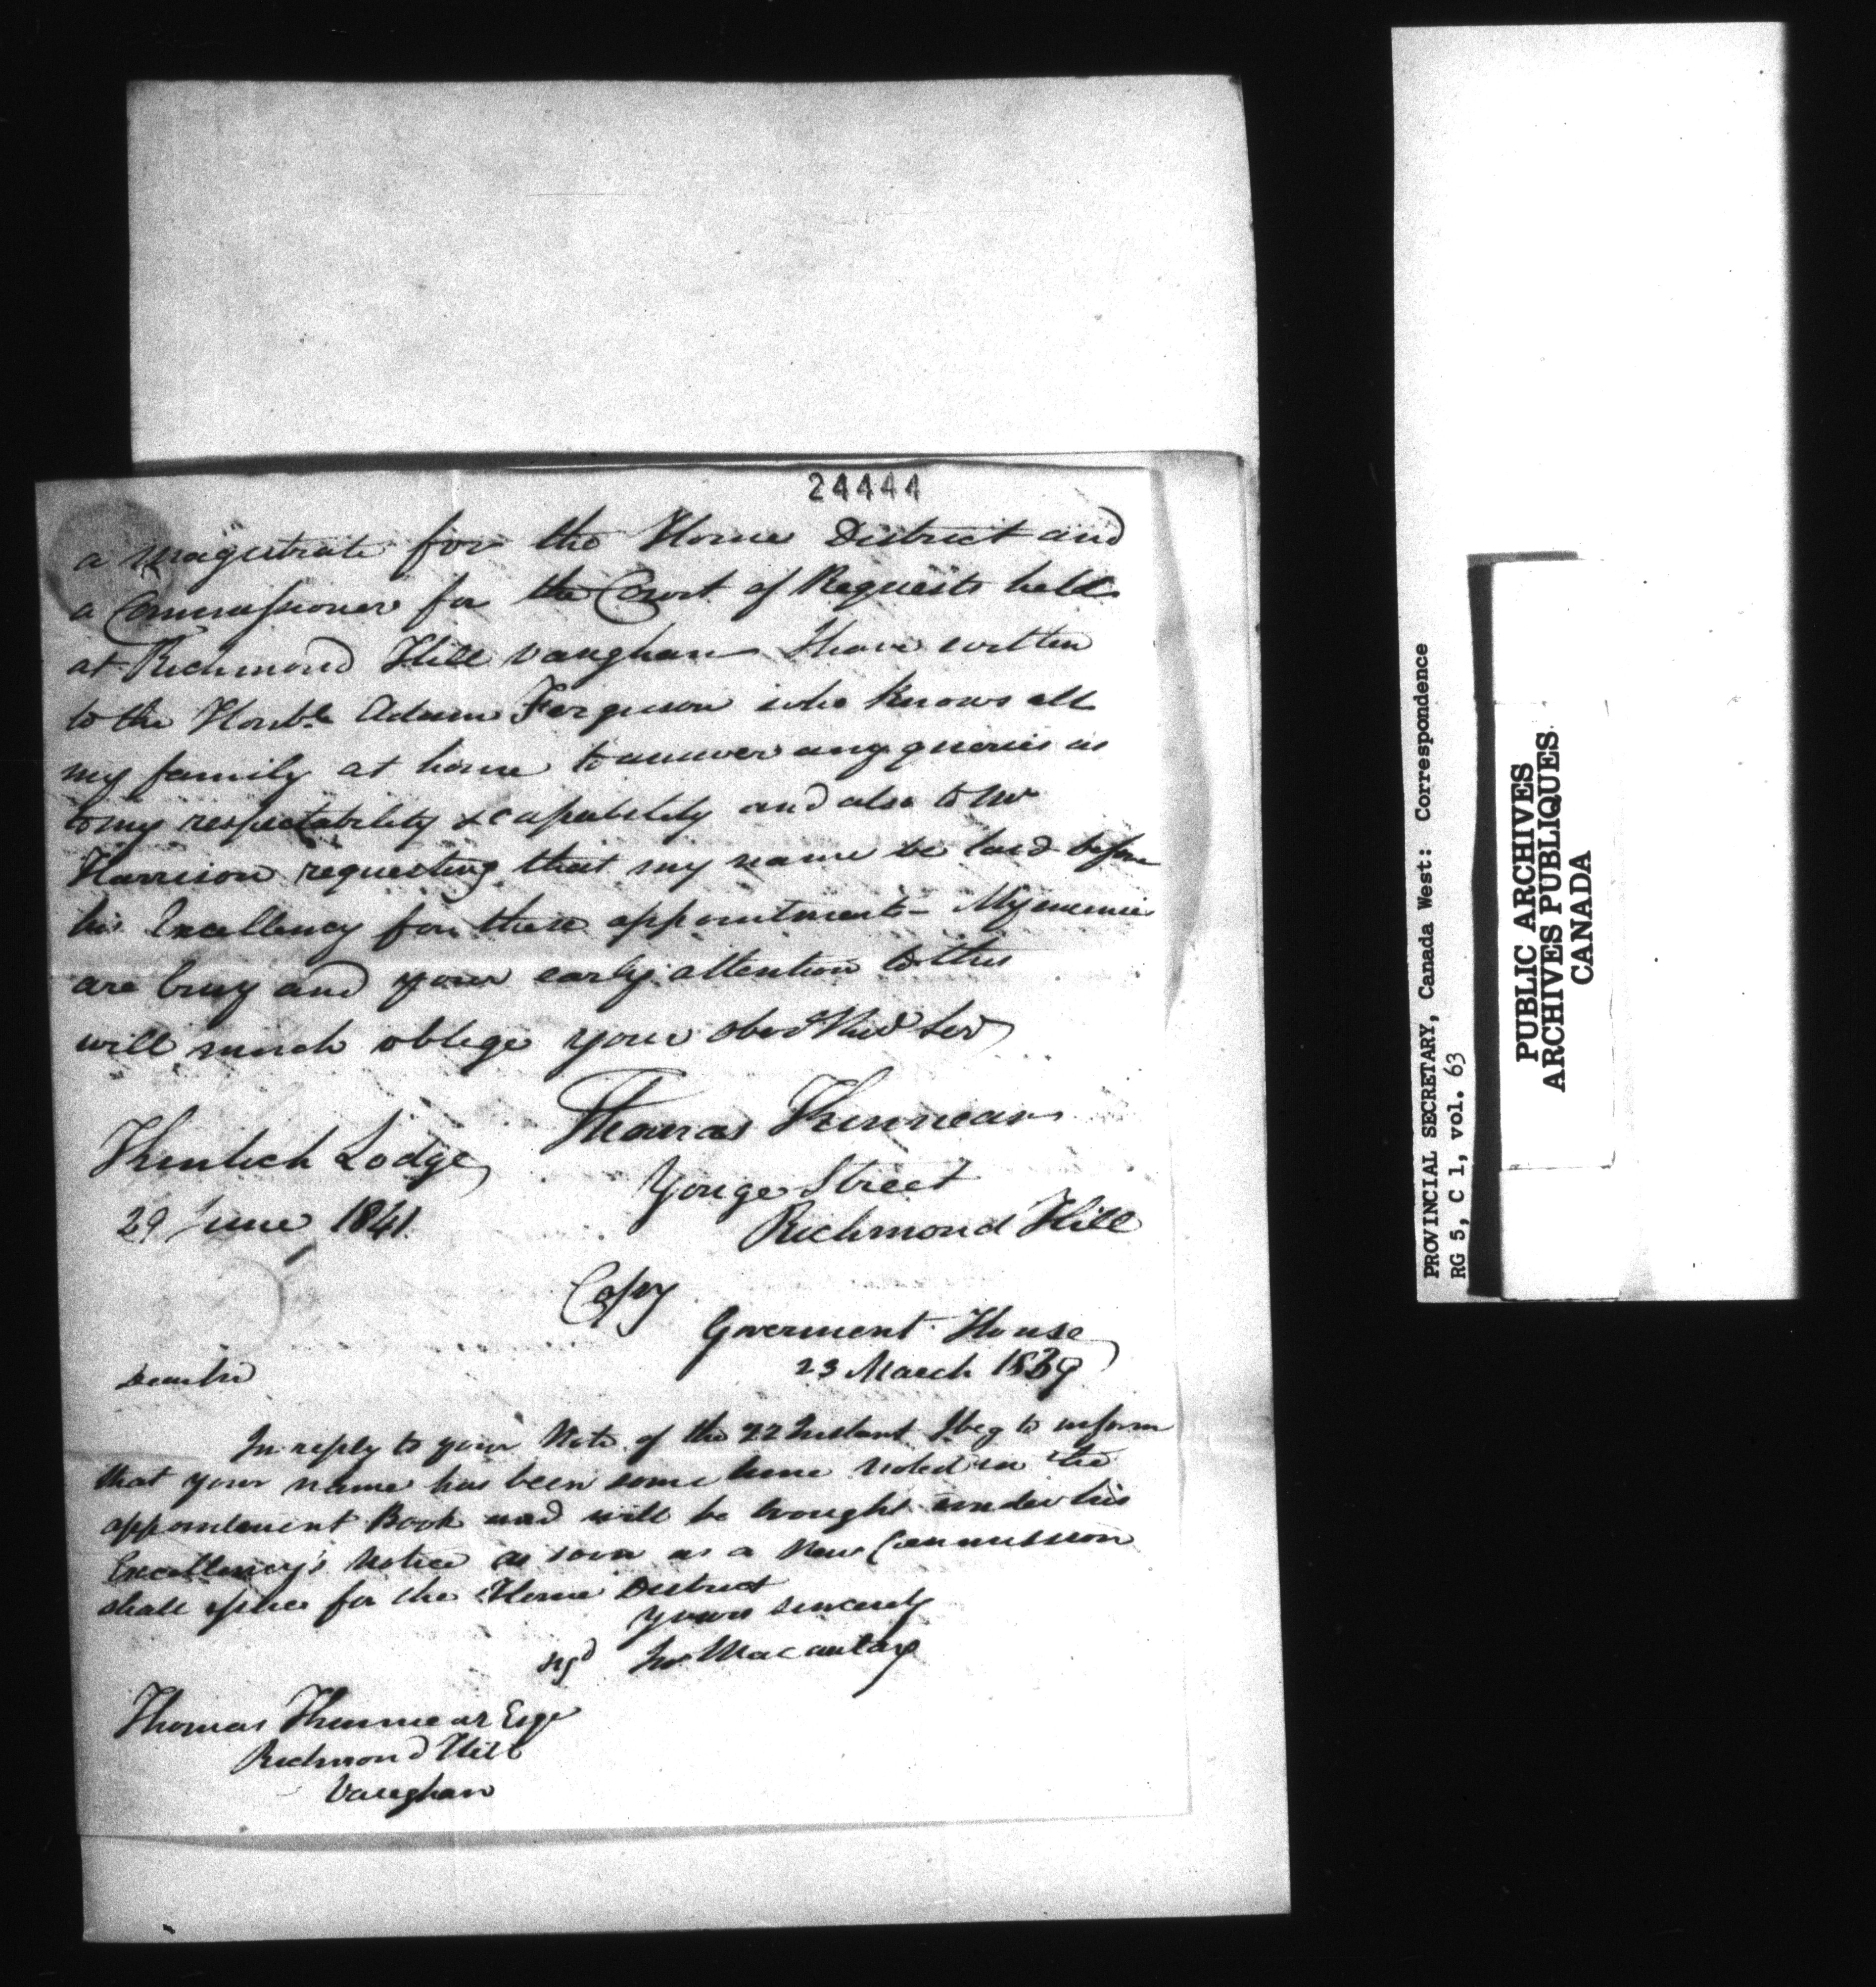 24444
a magistrate for the Home District and
a Commissioner for the Court of Requests held
at Richmond Hill Vaughan I have written
to the Honble Adam Ferguson who knows all
my family at home to answer any queries as
to my respectability & capability and also to Mr
Harrison requesting that my name be laid before
his Excellency for these appointments - My enemies
are busy and your early attention to this
will much oblige your obed
Thomas
Lodge
Yonge Street
29 June 1841
Richmond Hill
Copy
Goverment House
23 March 1839
Dear Sir
In reply to your Note of the 22 Instant I beg to inform
that your name has been some time noted in the
appointment Book and will be brought under his
Excellency's Notice as soon as a New Commission
shall for the Home District
Yours sincerely
sigd Jno Macaulay
Thomas Esqr
Richmond Hill
Vaughan
PROVINCIAL SECRETARY, Canada West: Correspondence
RG 5, C 1, vol. 63
PUBLIC ARCHIVES
ARCHIVES PUBLIQUES
CANADA